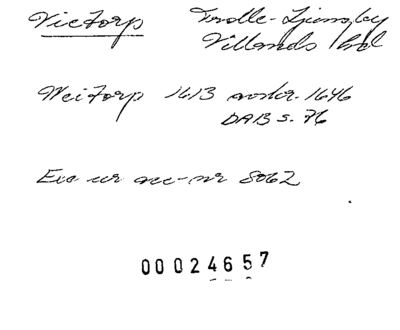 Vietorp Trolle-Ljungby
Villands hd
Weitorp 1613 avskr. 1646
DAB s. 76
Exc ur acc-nr 8062
00024657